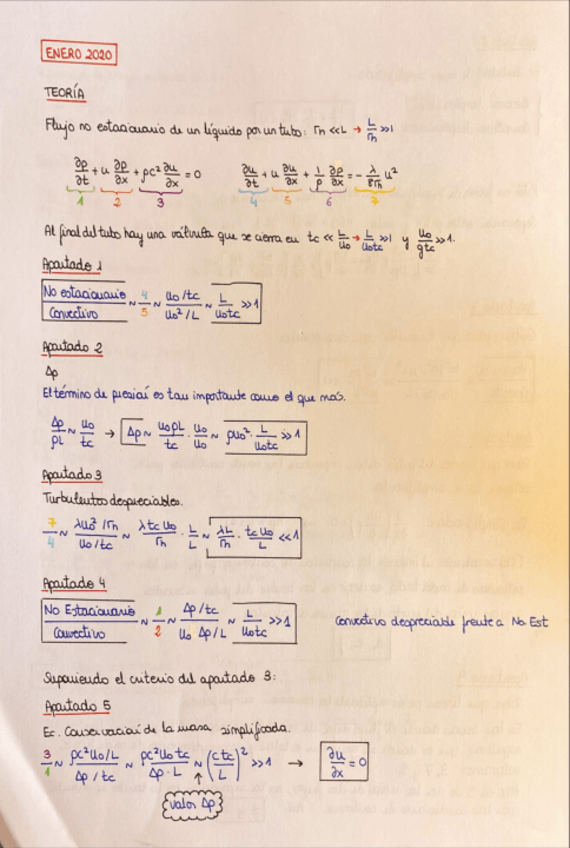 ENERO 2020
TEORÍA
Flujo no estacionario de un líquido por un tubo: rh << L → L/rh >> 1
∂p/∂t + u ∂p/∂x + ρc² ∂u/∂x = 0    ∂u/∂t + u ∂u/∂x + 1/ρ ∂p/∂x = - λ/8rh u²
1 2 3 4 5 6 7
Al final del tubo hay una válvula que se cierra en tc << L/u₀ → L/u₀tc >> 1 y u₀/gtc >> 1.
Apartado 1
No estacionario/Convectivo ~ 4/5 ~ (u₀/tc)/(u₀²/L) ~ L/u₀tc >> 1
Apartado 2
Δp
El término de presiai es tan importante como el que más.
Δp/ρL ~ u₀/tc → Δp ~ u₀ρL/tc · u₀/u₀ ~ ρu₀² · L/u₀tc >> 1
Apartado 3
Turbulentos despreciables.
7/4 ~ (λu₀²/rh)/(u₀/tc) ~ λtcu₀/rh · L/L ~ λL/rh · tcu₀/L << 1
Apartado 4
No Estacionario/Convectivo ~ 1/2 ~ (Δp/tc)/(u₀ Δp/L) ~ L/u₀tc >> 1    Convectivo despreciable frente a No Est
Suponiendo el criterio del apartado 3:
Apartado 5
Ec. Conservaciai de la masa simplificada.
3/1 ~ (ρc²u₀/L)/(Δp/tc) ~ ρc²u₀tc/Δp·L ~ (ctc/L)² >> 1 → ∂u/∂x = 0
↑
valor Δp